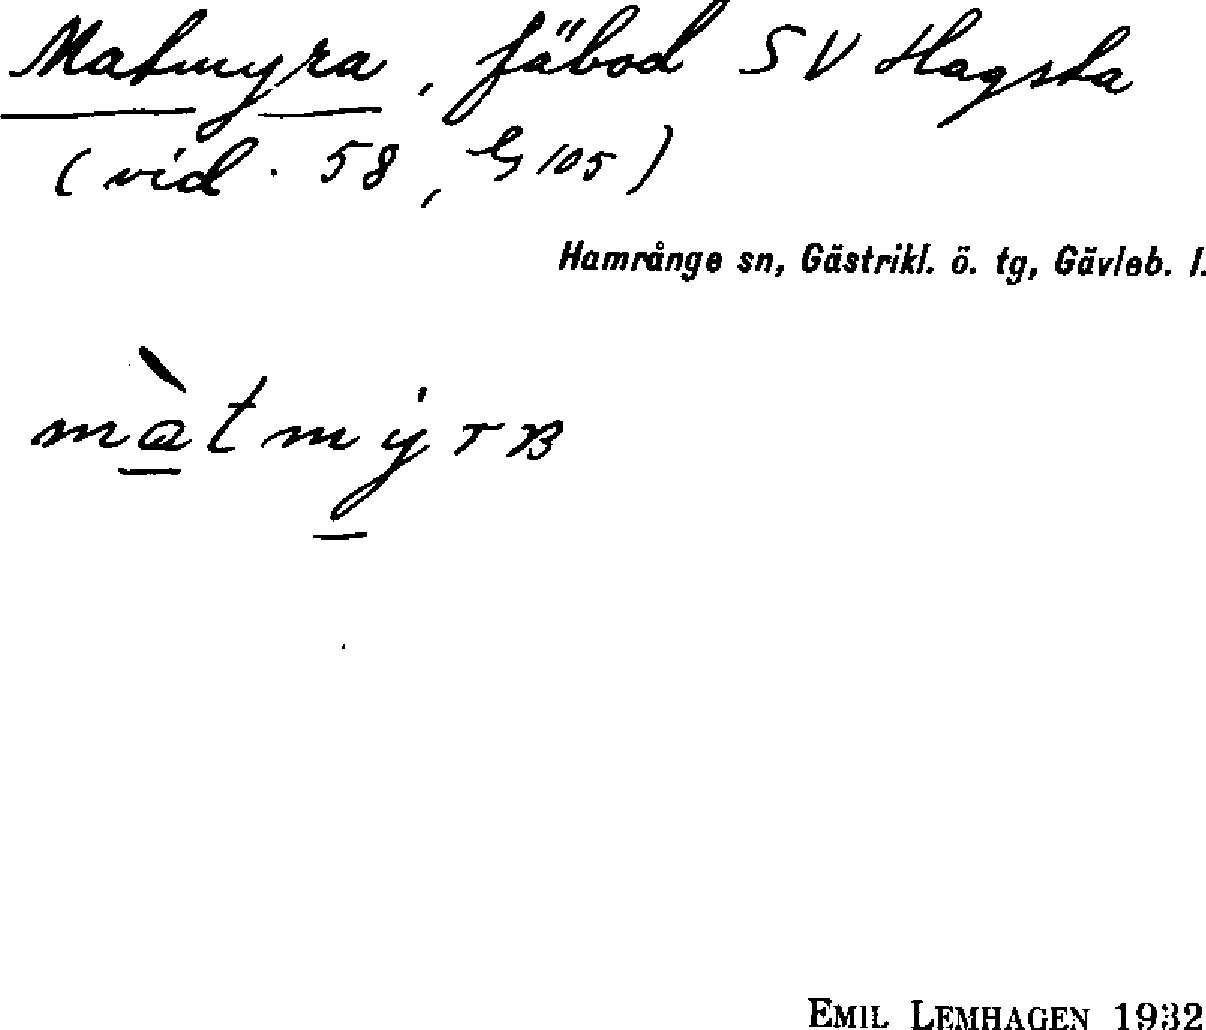 Matmyra, fäbod SV Hagsta
(vid. 58, G 105)
Hamrånge sn, Gästrikl. ö. tg, Gävleb. l.
màtmy̍rв
EMIL LEMHAGEN 1932